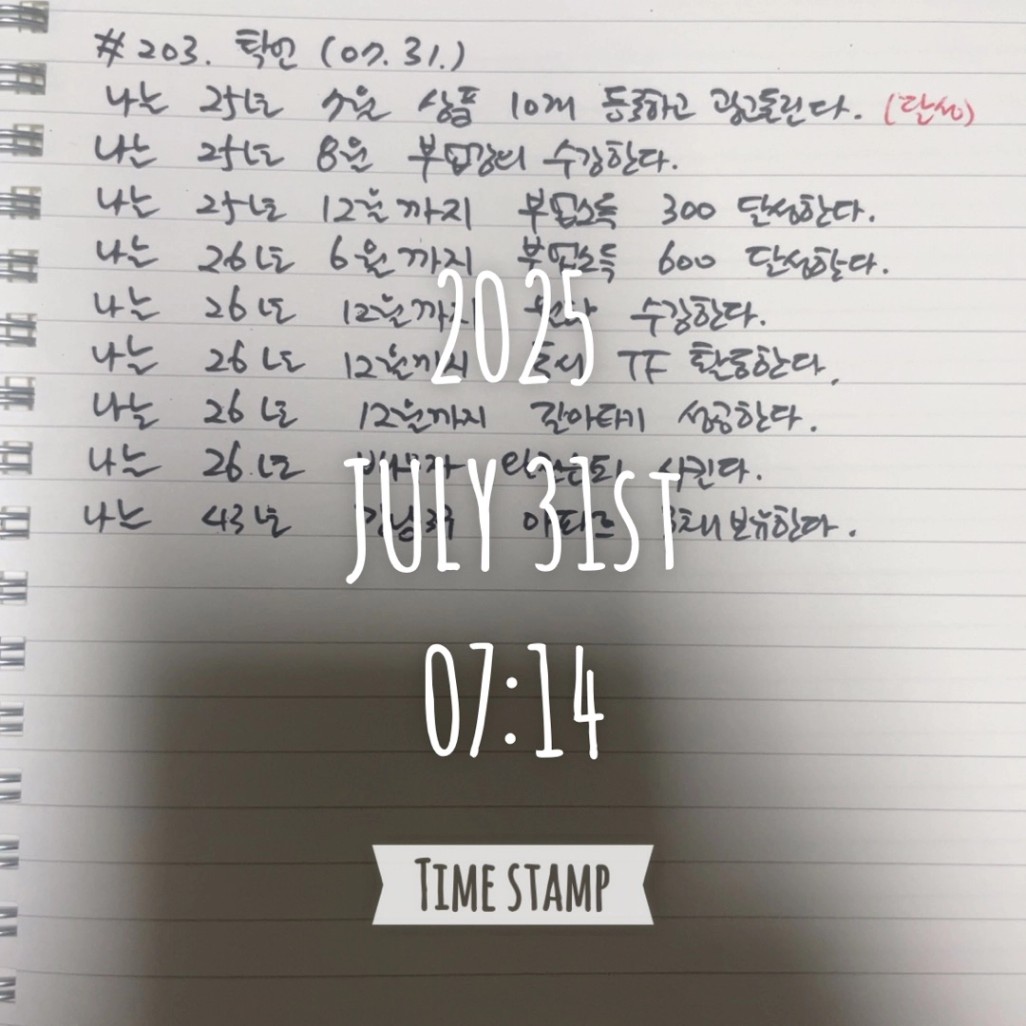 #203. 확언 (07.31.)
나는 25년 7월 상품 10개 등록하고 광고돌린다. (달성)
나는 25년 8월 부업강의 수강한다.
나는 25년 12월까지 부업소득 300 달성한다.
나는 26년 6월까지 부업소득 600 달성한다.
나는 26년 12월까지 수강한다.
나는 26년 12월까지 독서 TF 활동한다.
나는 26년 12월까지 갈아타기 성공한다.
나는 26년 시킨다.
나는 43년 강남3구 아파트 3채 보유한다.
2025
JULY 31ST
07:14
TIME STAMP